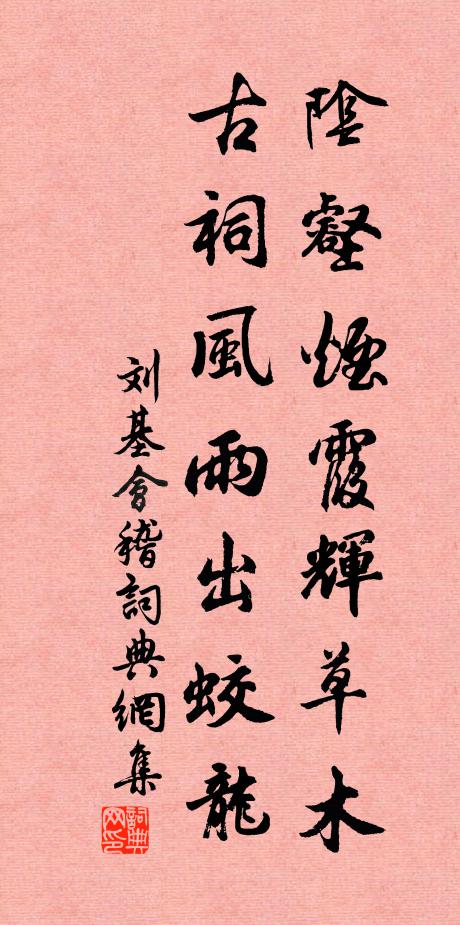 陰壑煙霞輝草木
古祠風雨出蛟龍
刘基會稽詞典網集
詞典
网印